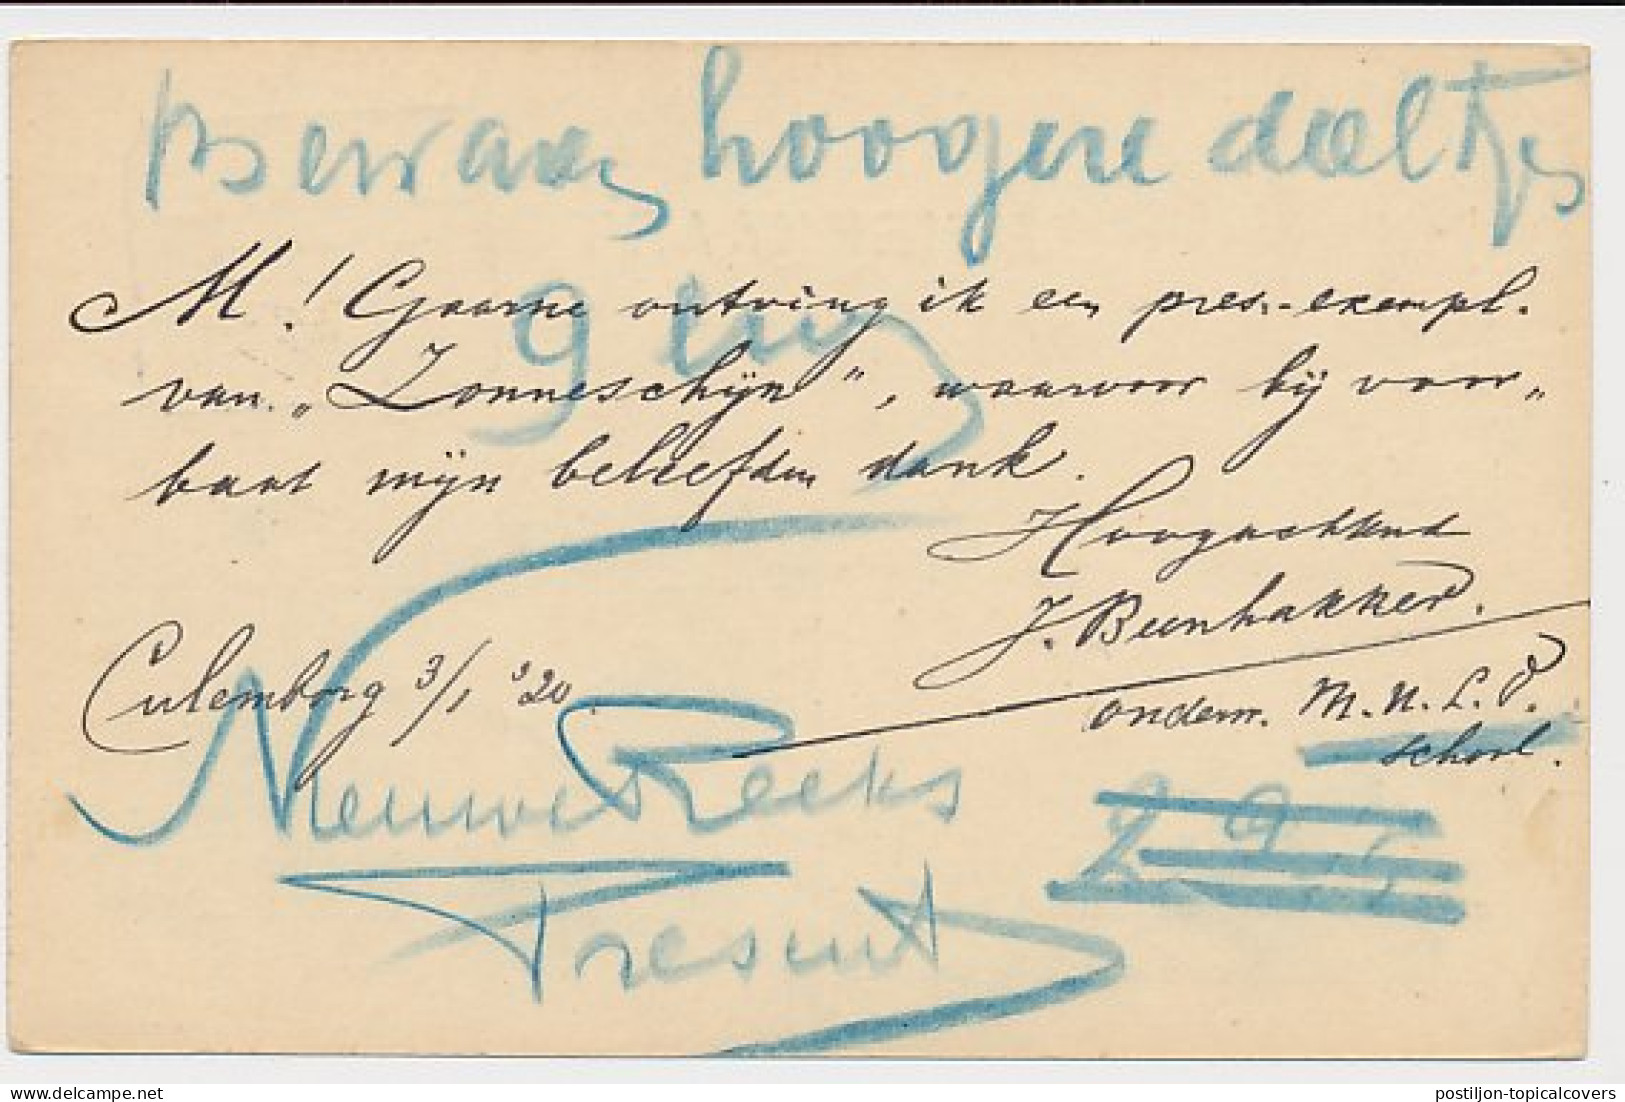 Bewaar hoogere deeltjes
M! Gaarne ontving ik een pres.-exempl.
van „Zonneschijn”, waarvoor bij voor„
baat mijn beleefden dank.
Hoogachtend
J. Beenhakker.
Culemborg 3/1 '20.
onderw. M.U.L.O.
school.
Nieuwe Reeks
Present
postiljon-topicalcovers